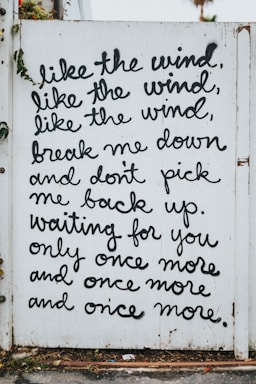 like the wind,
like the wind,
like the wind,
break me down
and don't pick
me back up.
waiting for you
only once more
and once more
and once more.